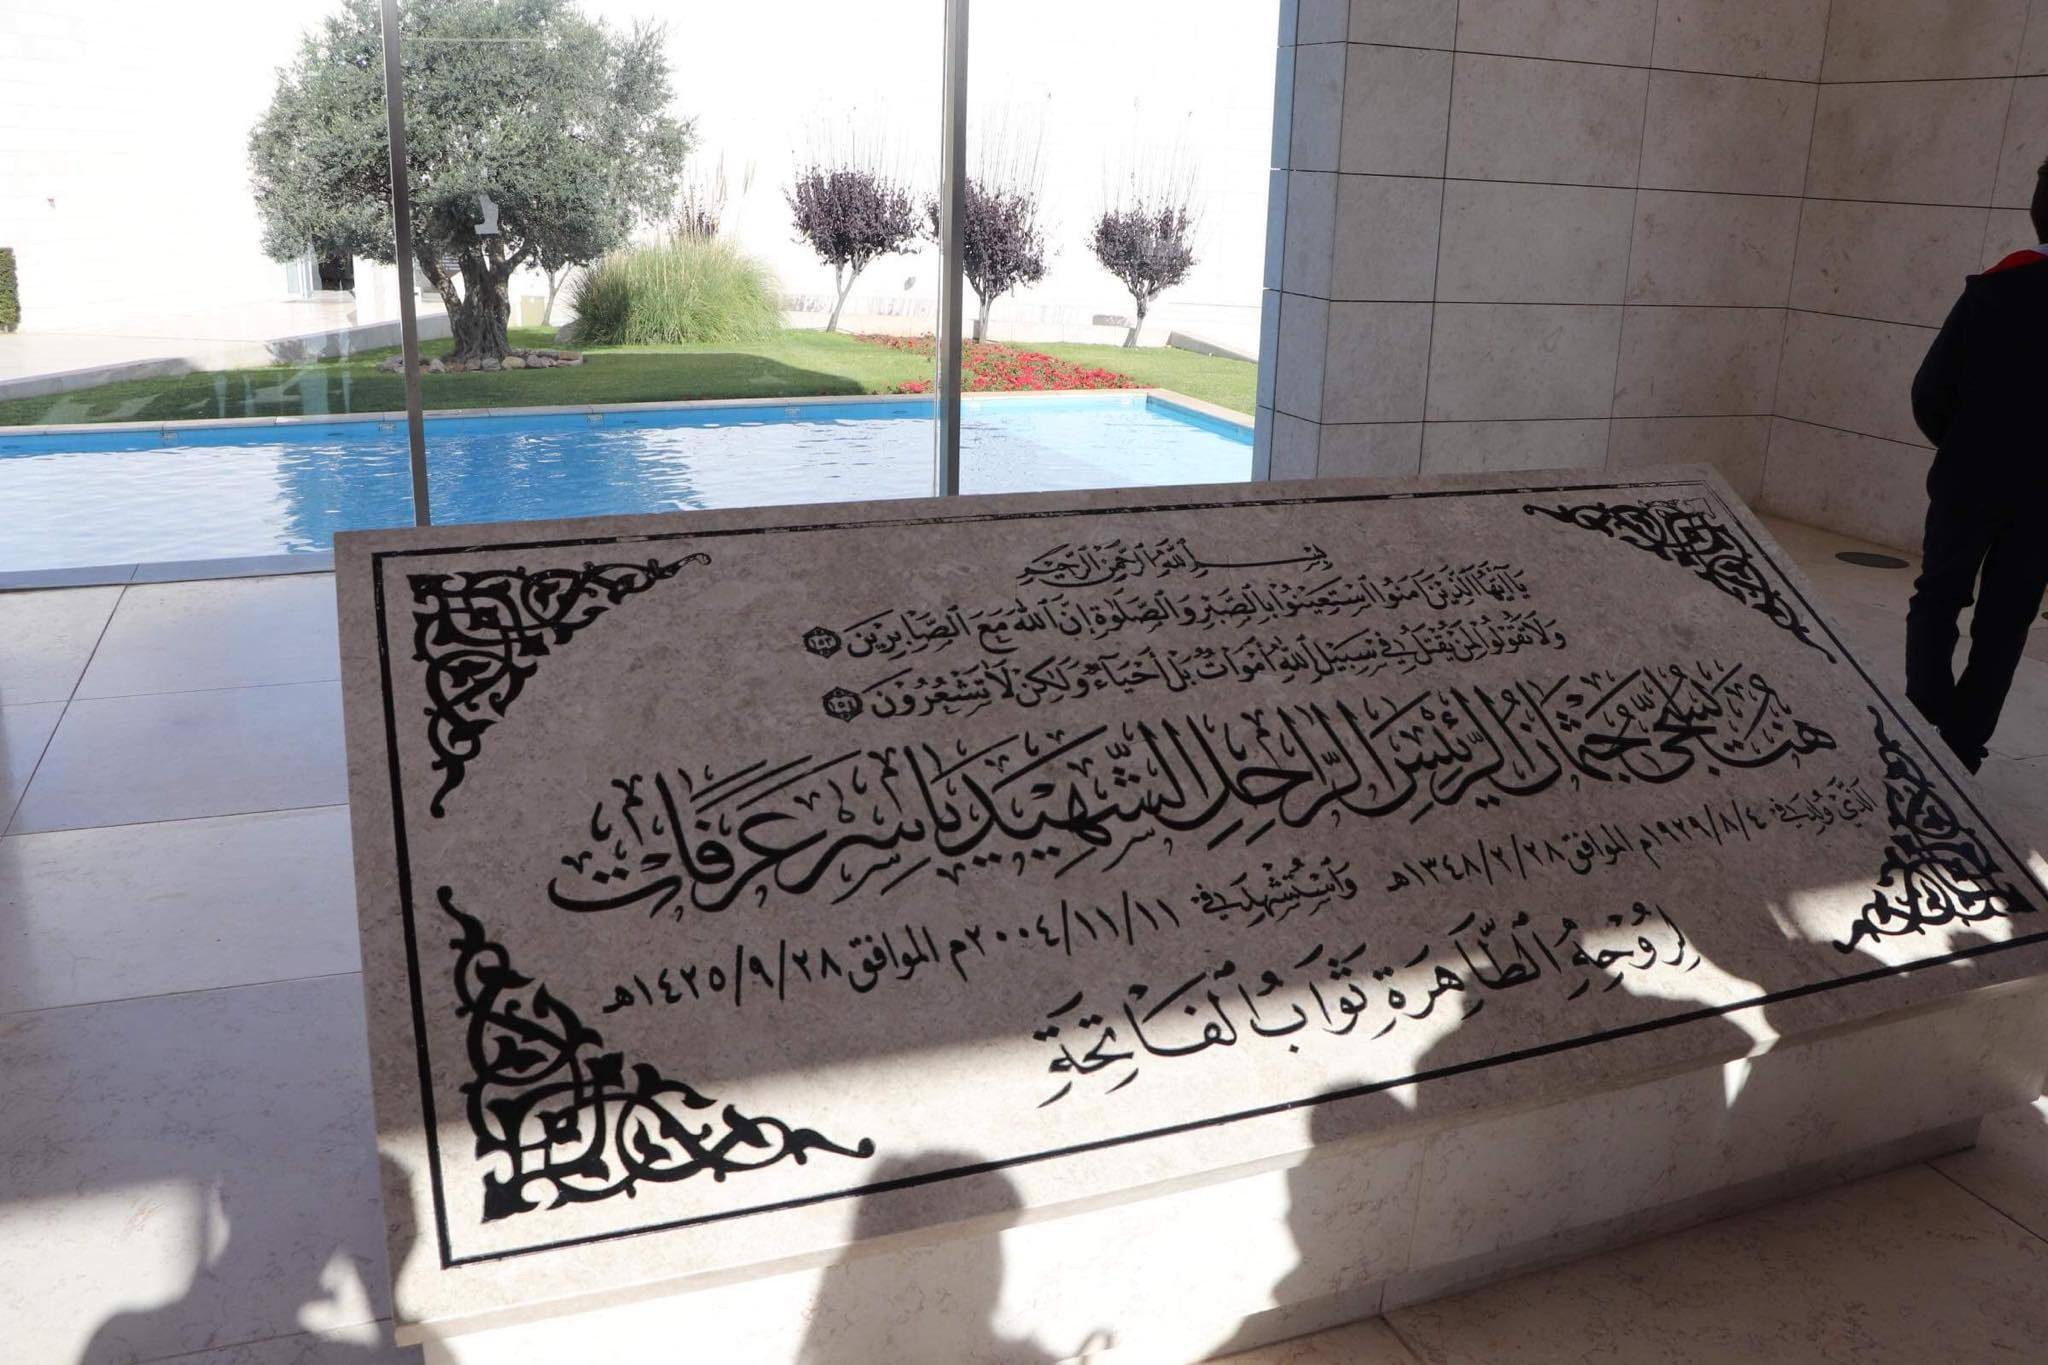 بِسْمِ ٱللَّهِ ٱلرَّحْمَٰنِ ٱلرَّحِيمِ
يَا أَيُّهَا ٱلَّذِينَ آمَنُوا ٱسْتَعِينُوا بِٱلصَّبْرِ وَٱلصَّلَاةِ إِنَّ ٱللَّهَ مَعَ ٱلصَّابِرِينَ ١٥٣
وَلَا تَقُولُوا لِمَنْ يُقْتَلُ فِي سَبِيلِ ٱللَّهِ أَمْوَاتٌ بَلْ أَحْيَاءٌ وَلَٰكِنْ لَا تَشْعُرُونَ ١٥٤
هُنَا يُسَجَّى جُثْمَانُ الرَّئِيسِ الرَّاحِلِ الشَّهِيدِ يَاسِر عَرَفَات
ٱلَّذِي وُلِدَ فِي: ١٩٢٩/٨/٤م الموافق ١٣٤٨/٢/٢٨هـ وَٱسْتُشْهِدَ فِي: ٢٠٠٤/١١/١١م الموافق ١٤٢٥/٩/٢٨هـ
لِرُوحِهِ ٱلطَّاهِرَةِ ثَوَابُ ٱلْفَاتِحَةِ